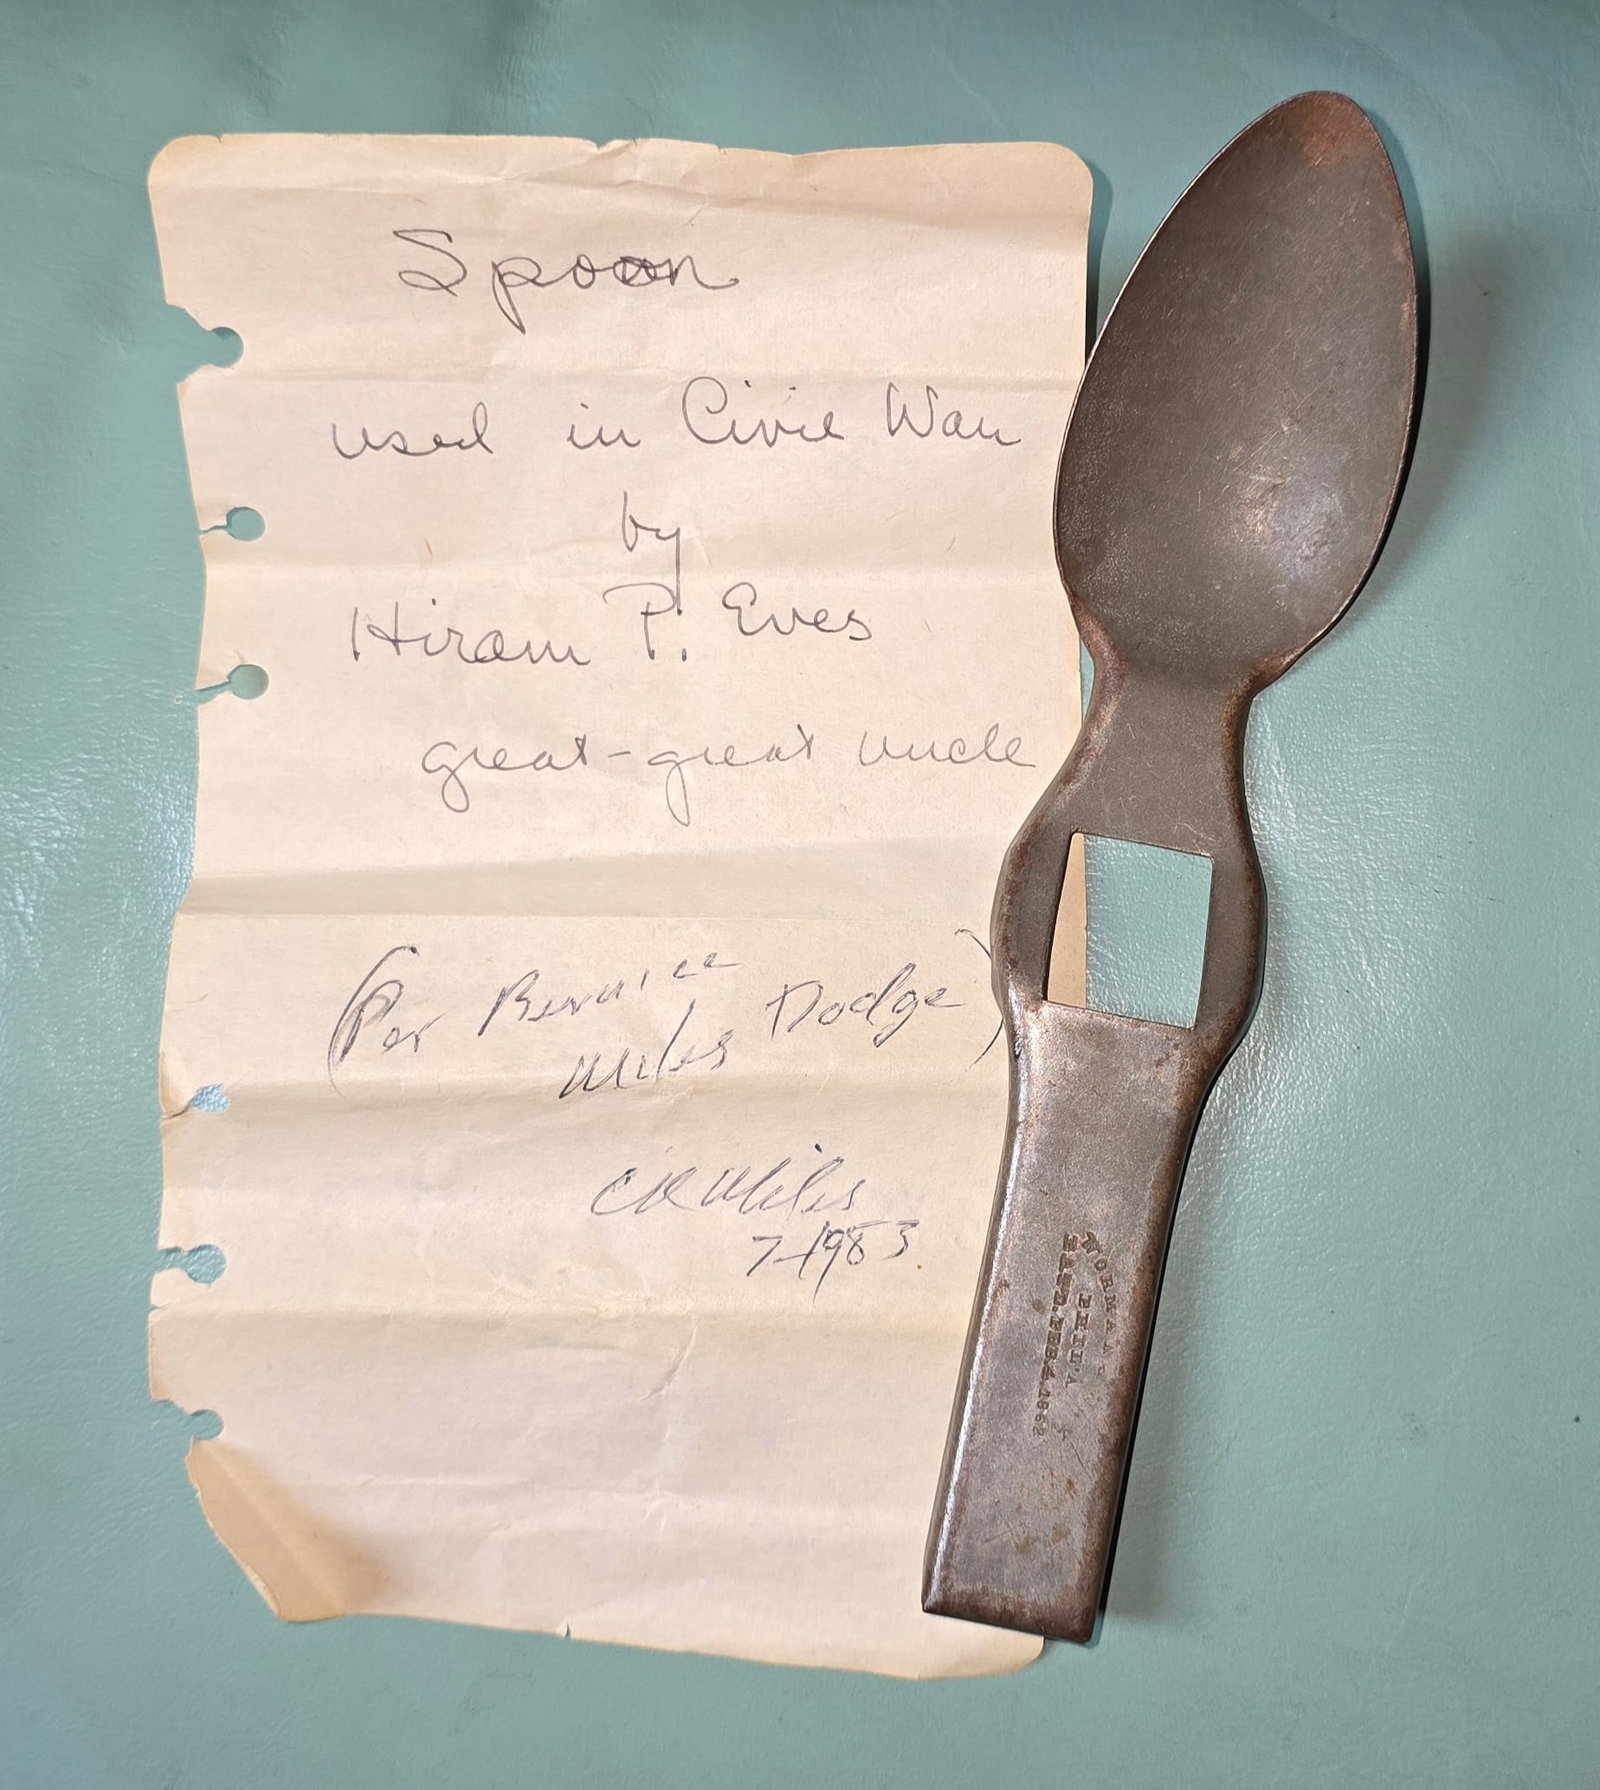 Spoon
used in Civil War
by
Hiram P. Eves
great-great uncle
(Per Bernice
Miles Dodge)
CR Miles
7-1983
PHIL'A
PATD. FEB. 4. 1862